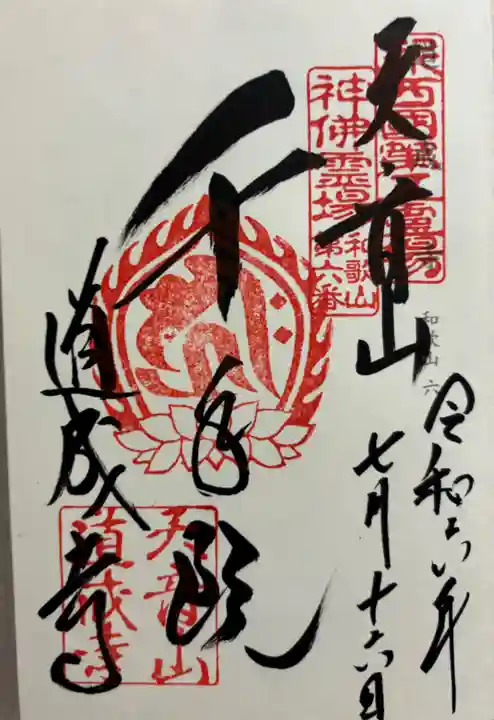 天音山
神佛霊場
和歌山
第六番
和歌山 六
令和六年
七月十六日
千手殿
道成寺
天音山
道成寺